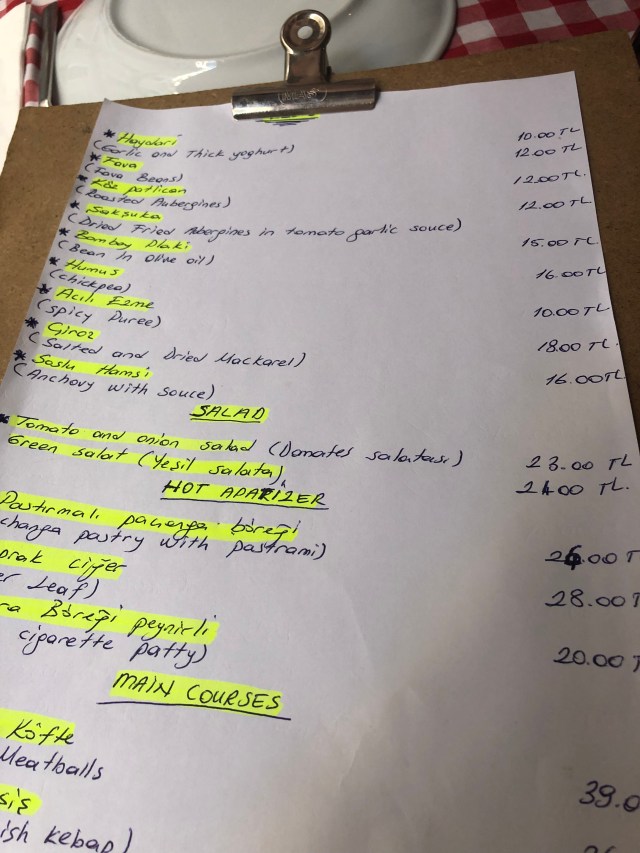 * Haydari 10.00 TL
(Garlic and Thick yoghurt) 12.00 TL
* Fava
(Fava Beans) 12.00 TL.
* Köz patlican
(Roasted Aubergines) 12.00 TL
* Saksuka
(Dried Fried Abergines in tomato garlic souce)
* Bombay Plaki 15.00 TL
(Bean In Olive oil)
* Humus 16.00 TL
(chickpea)
* Acılı Ezme 10.00 TL
(spicy Puree)
* Giroz 18.00 TL.
(Salted and Dried Mackarel)
* Soslu Hamsi 16.00 TL
(Anchovy with souce)
SALAD
* Tomato and onion salad (Domates salatası) 23.00 TL
Green salat (Yesil salata) 21.00 TL.
HOT APARIZER
Pastırmalı paçanga böreği
changa pastry with pastrami) 26.00 T
prak ciğer
er Leaf) 28.00 T
ra Böreği peynirli
cigarette patty) 20.00 T
MAIN COURSES
Köfte
Meatballs 39.0
siş
ish kebap)